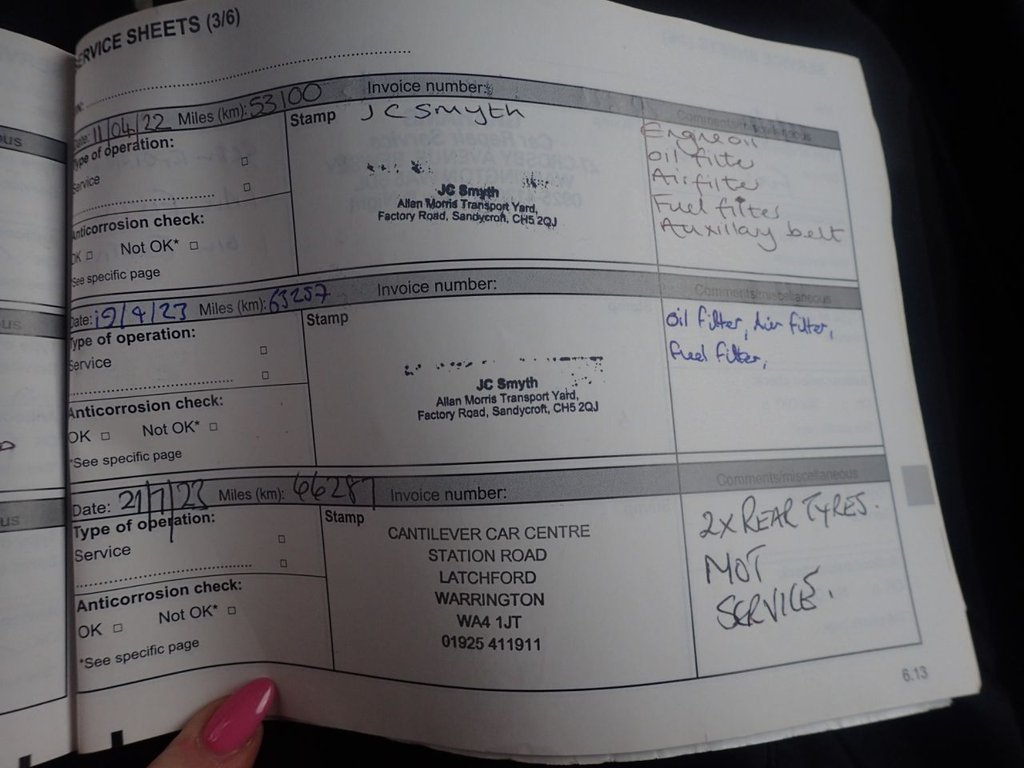 SERVICE SHEETS (3/6)
Date: 11/04/22 Miles (km): 53100 Invoice number:
Type of operation:
Service
Anticorrosion check:
OK □ Not OK* □
*See specific page
Stamp J C Smyth
JC Smyth
Allan Morris Transport Yard,
Factory Road, Sandycroft, CH5 2QJ
Comments/miscellaneous
Engine oil
oil filter
Air filter
Fuel filter
Auxillary belt
Date: 19/4/23 Miles (km): 63257 Invoice number:
Type of operation:
Service
Anticorrosion check:
OK □ Not OK* □
*See specific page
Stamp
JC Smyth
Allan Morris Transport Yard,
Factory Road, Sandycroft, CH5 2QJ
Comments/miscellaneous
Oil filter, Air filter,
Fuel filter,
Date: 21/7/23 Miles (km): 66287 Invoice number:
Type of operation:
Service
Anticorrosion check:
OK □ Not OK* □
*See specific page
Stamp
CANTILEVER CAR CENTRE
STATION ROAD
LATCHFORD
WARRINGTON
WA4 1JT
01925 411911
Comments/miscellaneous
2X REAR TYRES.
MOT
SERVICE.
6.13